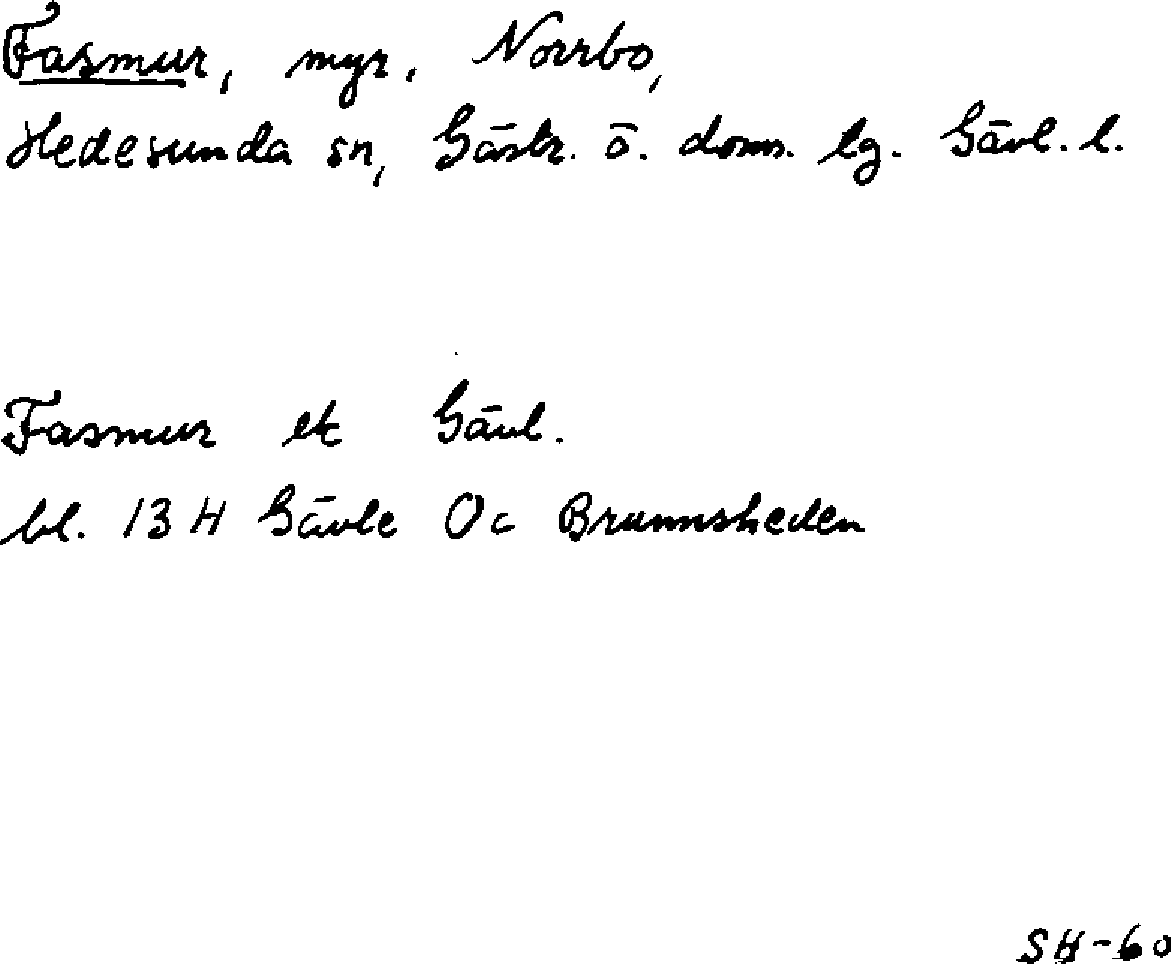 Fasmur, myr. Norrbo,
Hedesunda sn, Gästr. ö. doms. lg. Gävl. l.
Fasmur ek Gävl.
bl. 13 H Gävle 0c Brunnsheden
SH-60